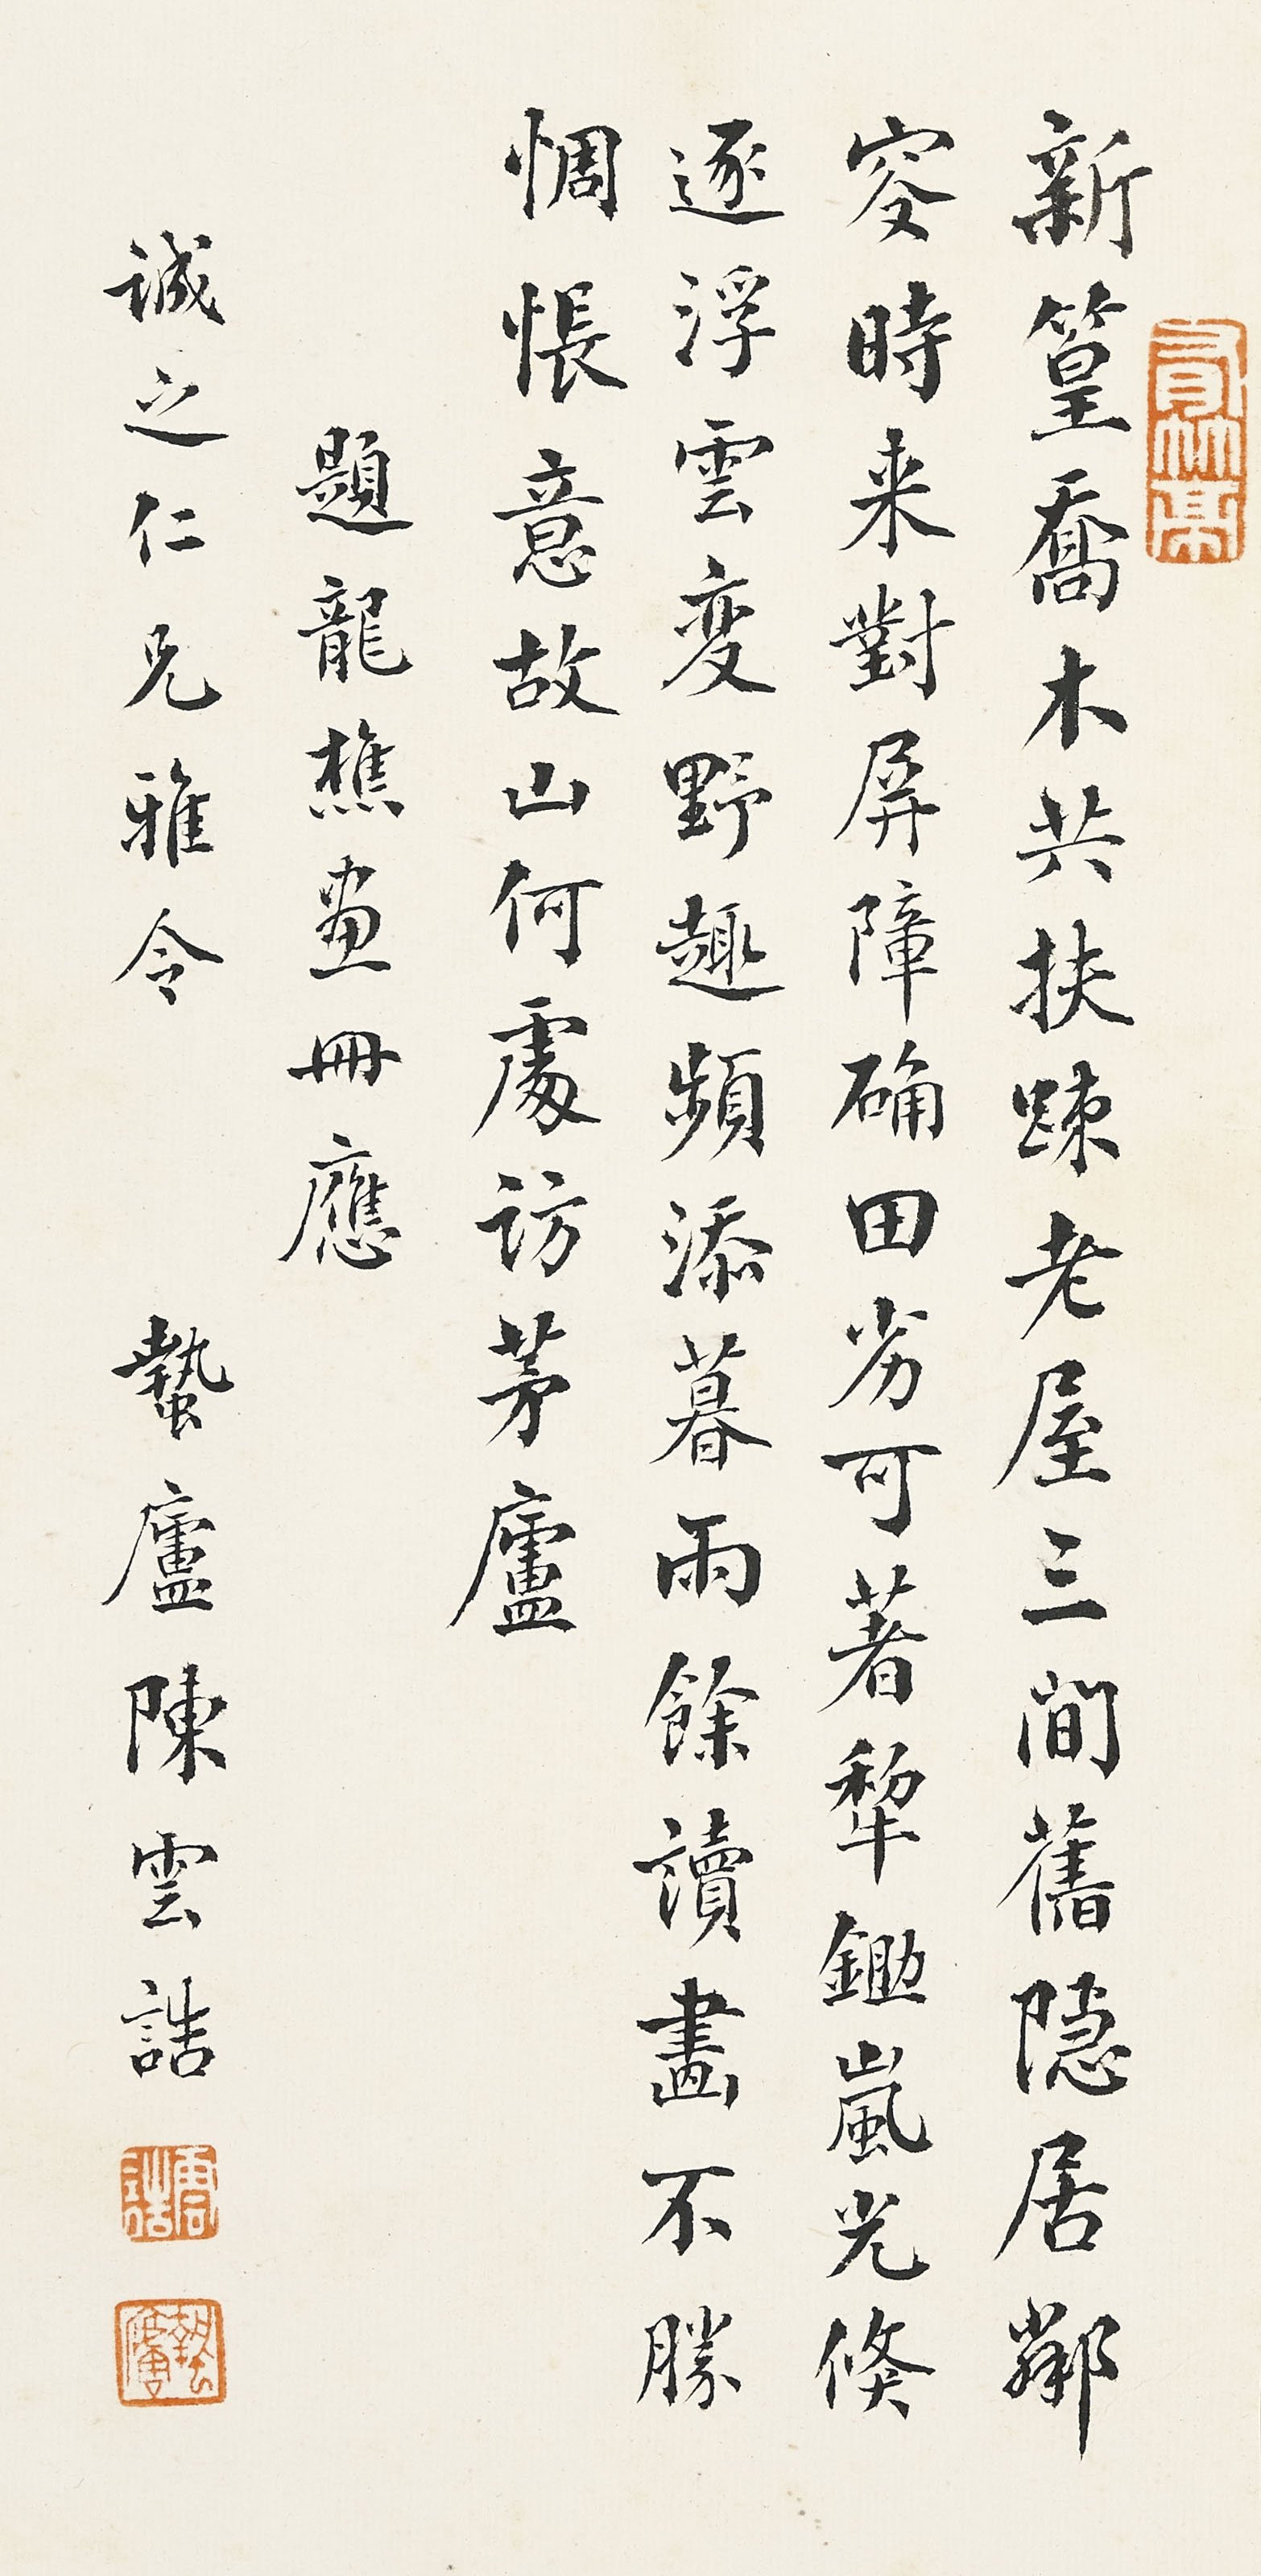 新篁喬木共扶踈老屋三間舊隱居鄰
叟時来對屏障确田劣可著犂鋤嵐光倏
逐浮雲变野趣頻添暮雨餘讀畫不勝
惆悵意故山何處訪茅廬
題龍樵畫冊應
誠之仁兄雅令
蟄廬陳雲誥
雲誥
蟄廬